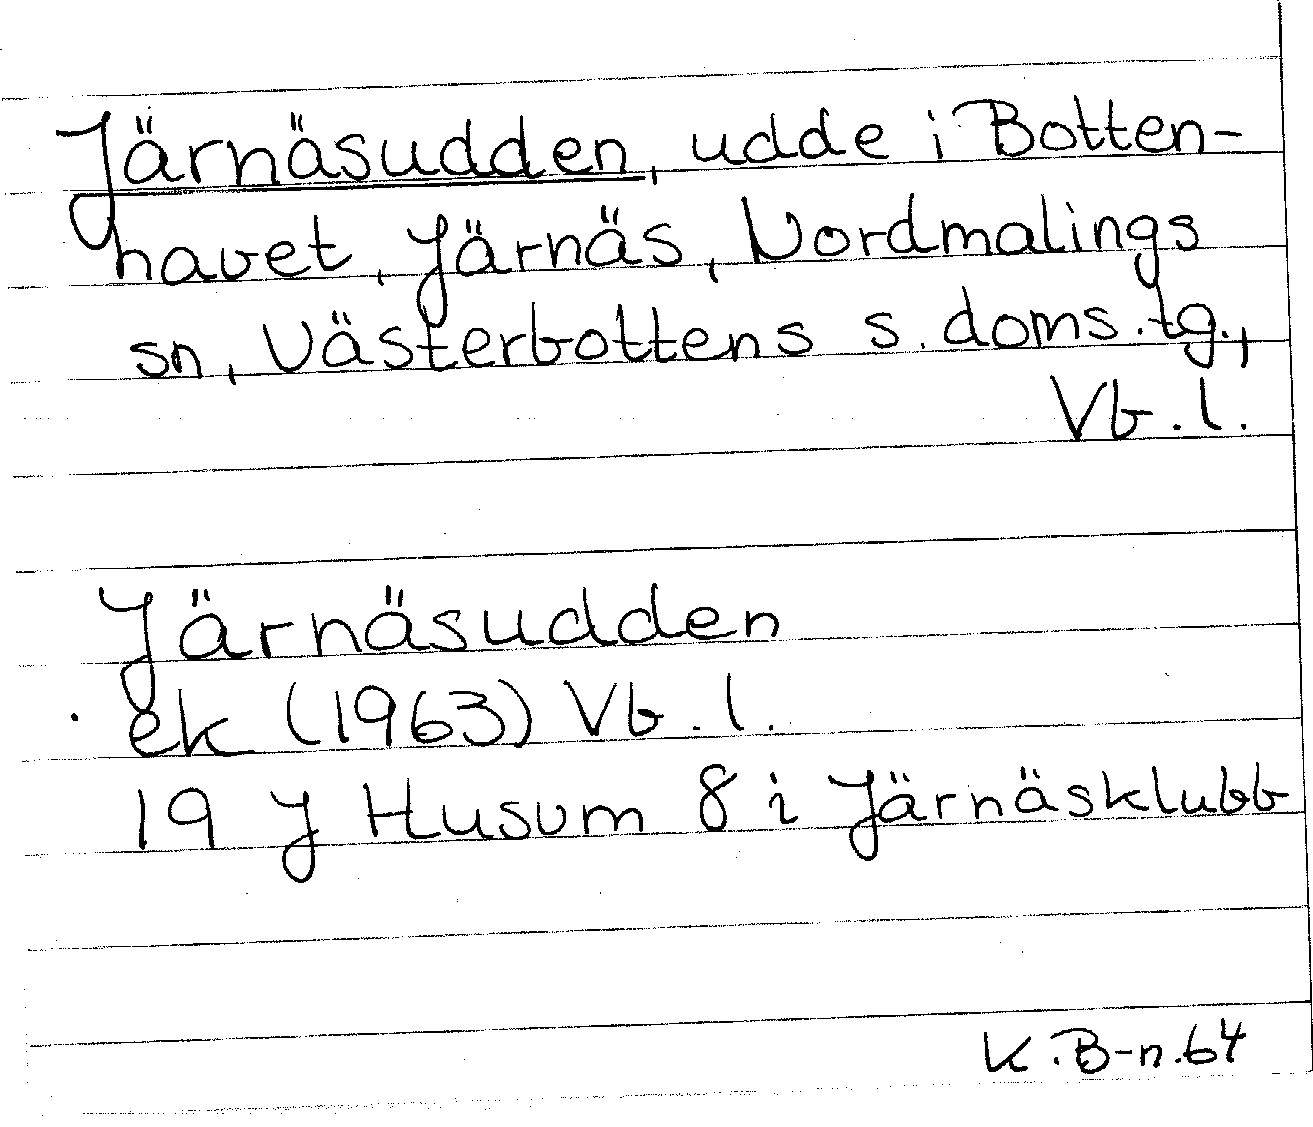 Järnäsudden, udde i Botten-
havet, Järnäs, Nordmalings
sn, Västerbottens s. doms.tg.,
Vb. l.
Järnäsudden
ek (1963) Vb. l.
19 J Husum 8 i Järnäsklubb
K.B-n.64